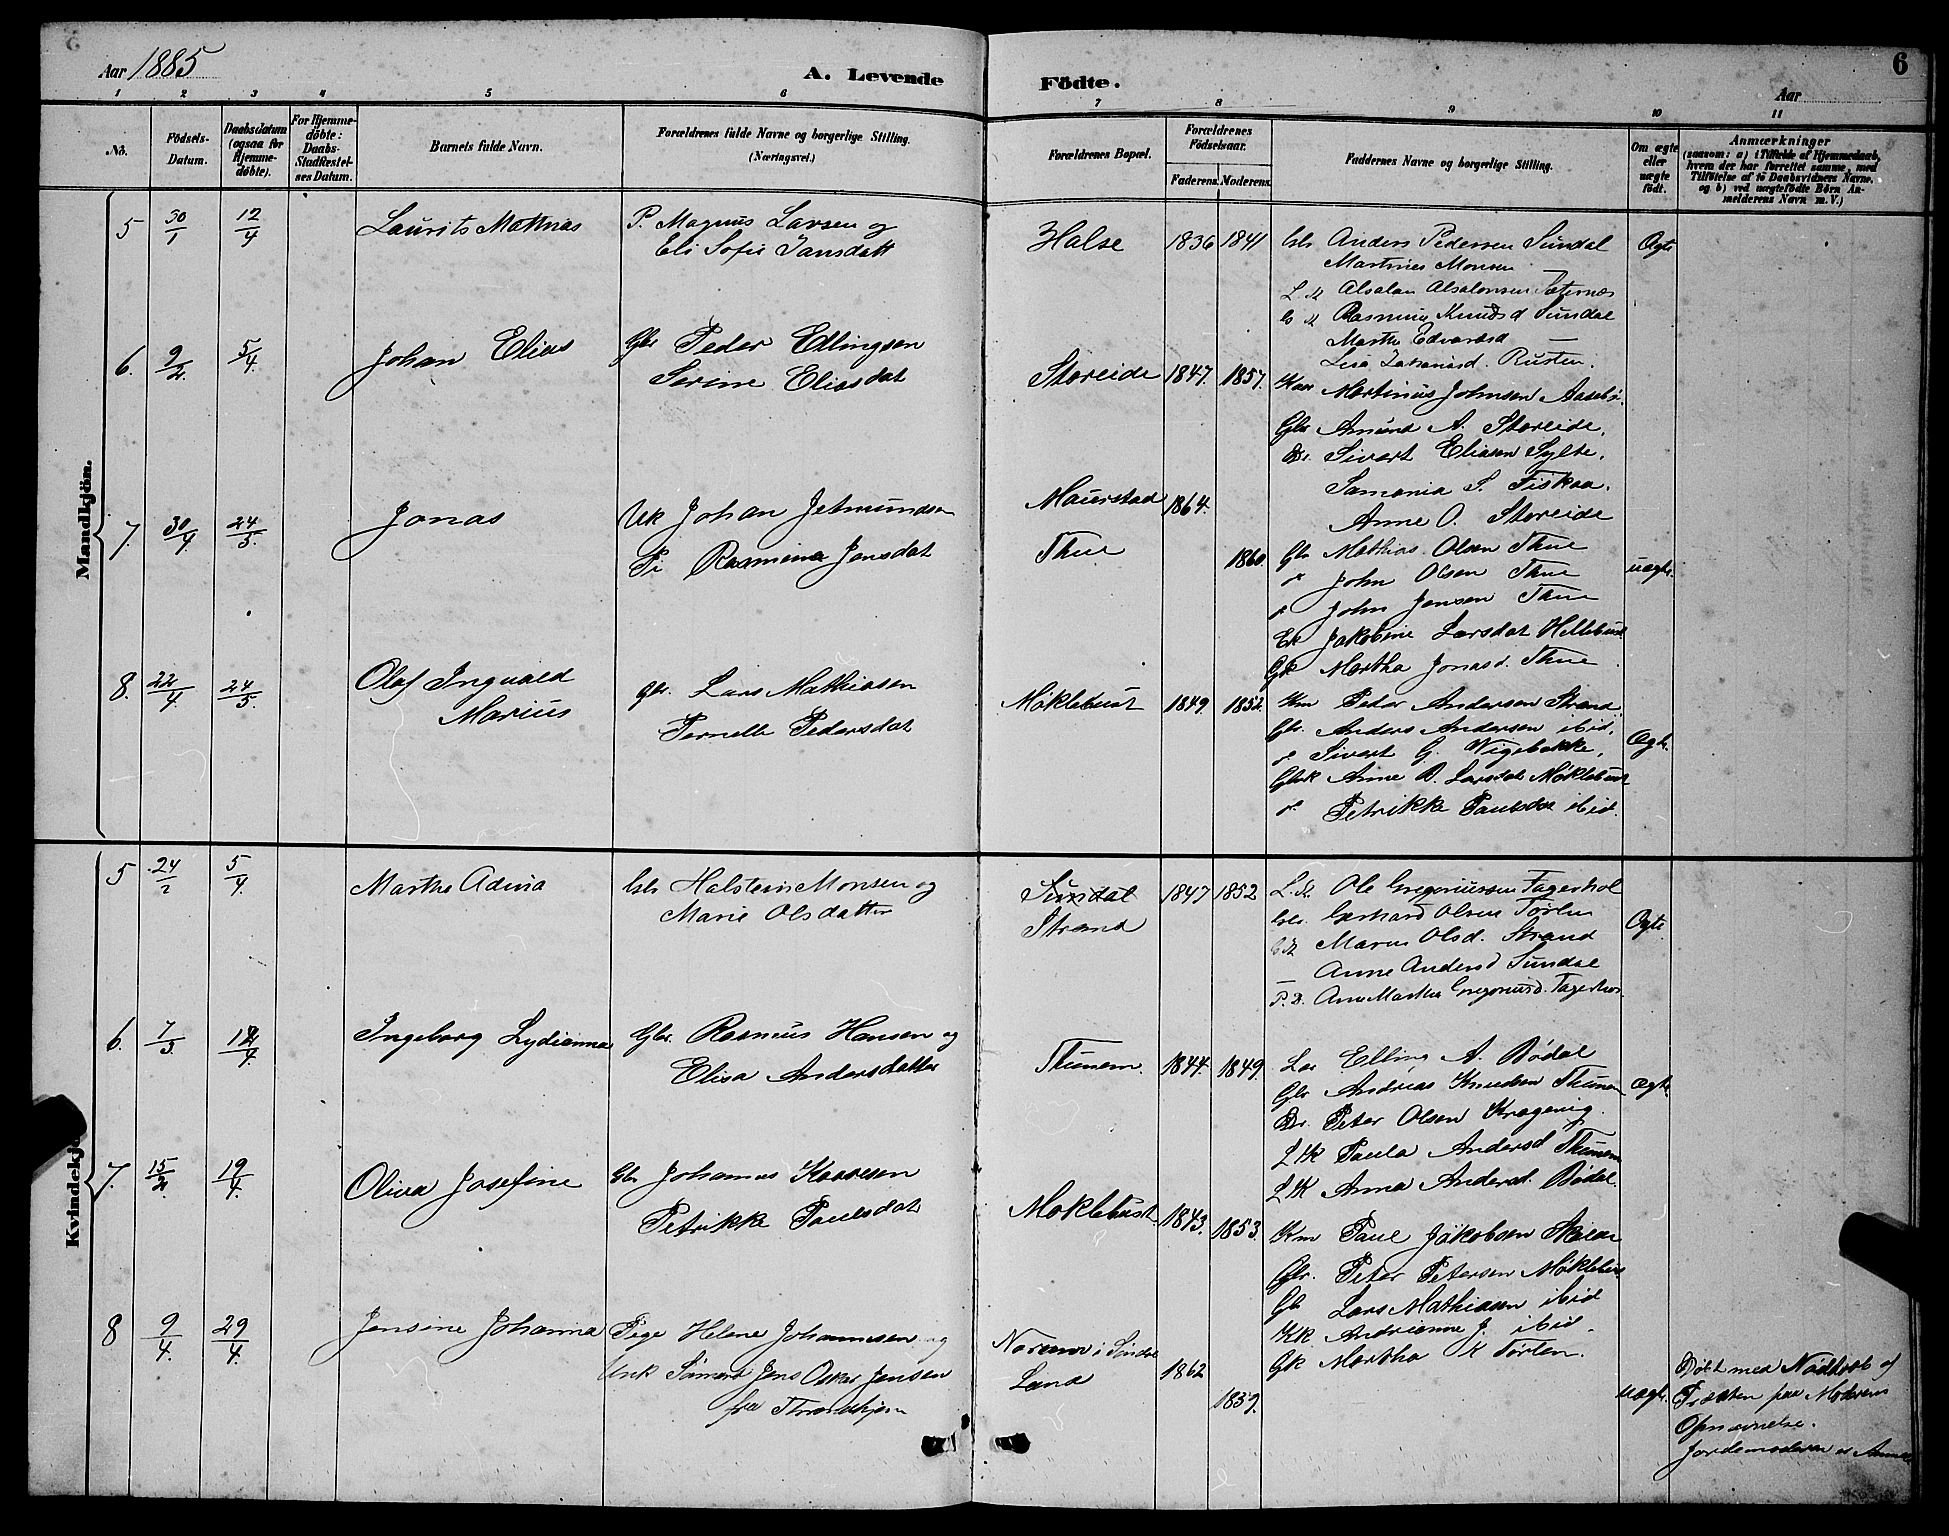 6
Aar 1885
A. Levende Födte.
Aar
1 2 3 4 5 6 7 8 9 10 11
No.
Födsels-Datum.
Daabsdatum (ogsaa for Hjemme-döbte).
For Hjemme-döbte: Daabs-Stadfæstel-ses Datum.
Barnets fulde Navn.
Forældrenes fulde Navne og borgerlige Stilling.
(Næringsvei.)
Forældrenes Bopæl.
Forældrenes Födselsaar.
Faderens. Moderens.
Faddernes Navne og borgerlige Stilling.
Om ægte eller uægte födt.
Anmærkninger
(saasom: a) i Tilfælde af Hjemmedaab, hvem der har forrettet samme, med Tilföielse af to Daabsvidners Navne, og b) ved uægtefödte Börn An-melderens Navn m. V.)
Mandkjön.
5 30/1 12/4 Laurits Mathias
P. Magnus Larsen og
Eli Sofie Jansdatt
Halse 1836 1841
Anders Pedersen Sundal
Martines Monsen
Absalonsen Sæternes
Rasmus Knudsd Sundal
Marthe Edvardsd
Rusten.
Ægte
6. 9/2. 5/4 Johan Elias
Gbr Peder Ellingsen
Serine Eliasdat
Storeide 1847. 1857.
Martinus Johnsen Aasebö.
Gbr Amund A. Storeide.
Sivert Eliasen Sylte.
Samania S. Fiskaa.
Anne O. Storeide
7. 30/4 24/5. Jonas
Uk Johan Jetmundsen
Pi Rasmine Jonsdat
Maurstad 1864.
Thue 1860.
Gbr Mathias Olsen Thue
John Olsen Thue
John Jensen Thue
Ek Jakobine Larsdat Hellebust
Gk Martha Jonasd. Thue
uægte.
8. 22/4 24/5. Olaf Ingvald
Marius
Gbr. Lars Mathiasen
Pernelle Pedersdat
Möklebust 1849. 1852.
Km Peder Andersen Strand
Gbr. Anders Andersen ibid.
Sivert G. Vigebakke.
Gbk Anne B. Larsdat Möklebust
Petrikke Paulsdat ibid.
Ægte.
Kvindekjö
5 24/2 5/4. Marthe Adina
Halstein Monsen og
Marie Olsdatter
Sundal
Strand
1847 1852
Ole Gregoriussen Fagerhol
Gerhard Olsen Törlen
Maren Olsd. Strand
Anne Andersd Sundal
P. D. Ane Marthe Gregoriusd. Fagerhol
Ægte
6. 7/3. 12/4. Ingeborg Lydianna
Gbr. Rasmus Hansen og
Elisa Andersdatter
Thunem. 1844. 1849.
Elling A. Bødal
Gbr Andrias Knudsen Thunem
Peter Olsen Kragenig.
L K Paula Andersd Thunem
L K Anna Andersd. Bødal.
Ægte
7. 15/2 19/4. Oliva Josefine
Gbr Johannes Kaaresen
Petrikke Paulsdat
Möklebust. 1843. 1853.
Km Paul Jakobsen
Gbr. Peter Petersen Möklebust
Gb Lars Mathiasen ibid
Kk Andrianne J. ibid.
Gk Martha K Törlen.
8 9/4. 29/4. Jensine Johanna
Pige Helene Johannesen og
Unk Sömand Jens Oskar Jensen
fra Throndhjem
1862
1859.
uægte.
Döbt med Nödtvob
paa Moderens
Opnævnelse.
Jordemoderen